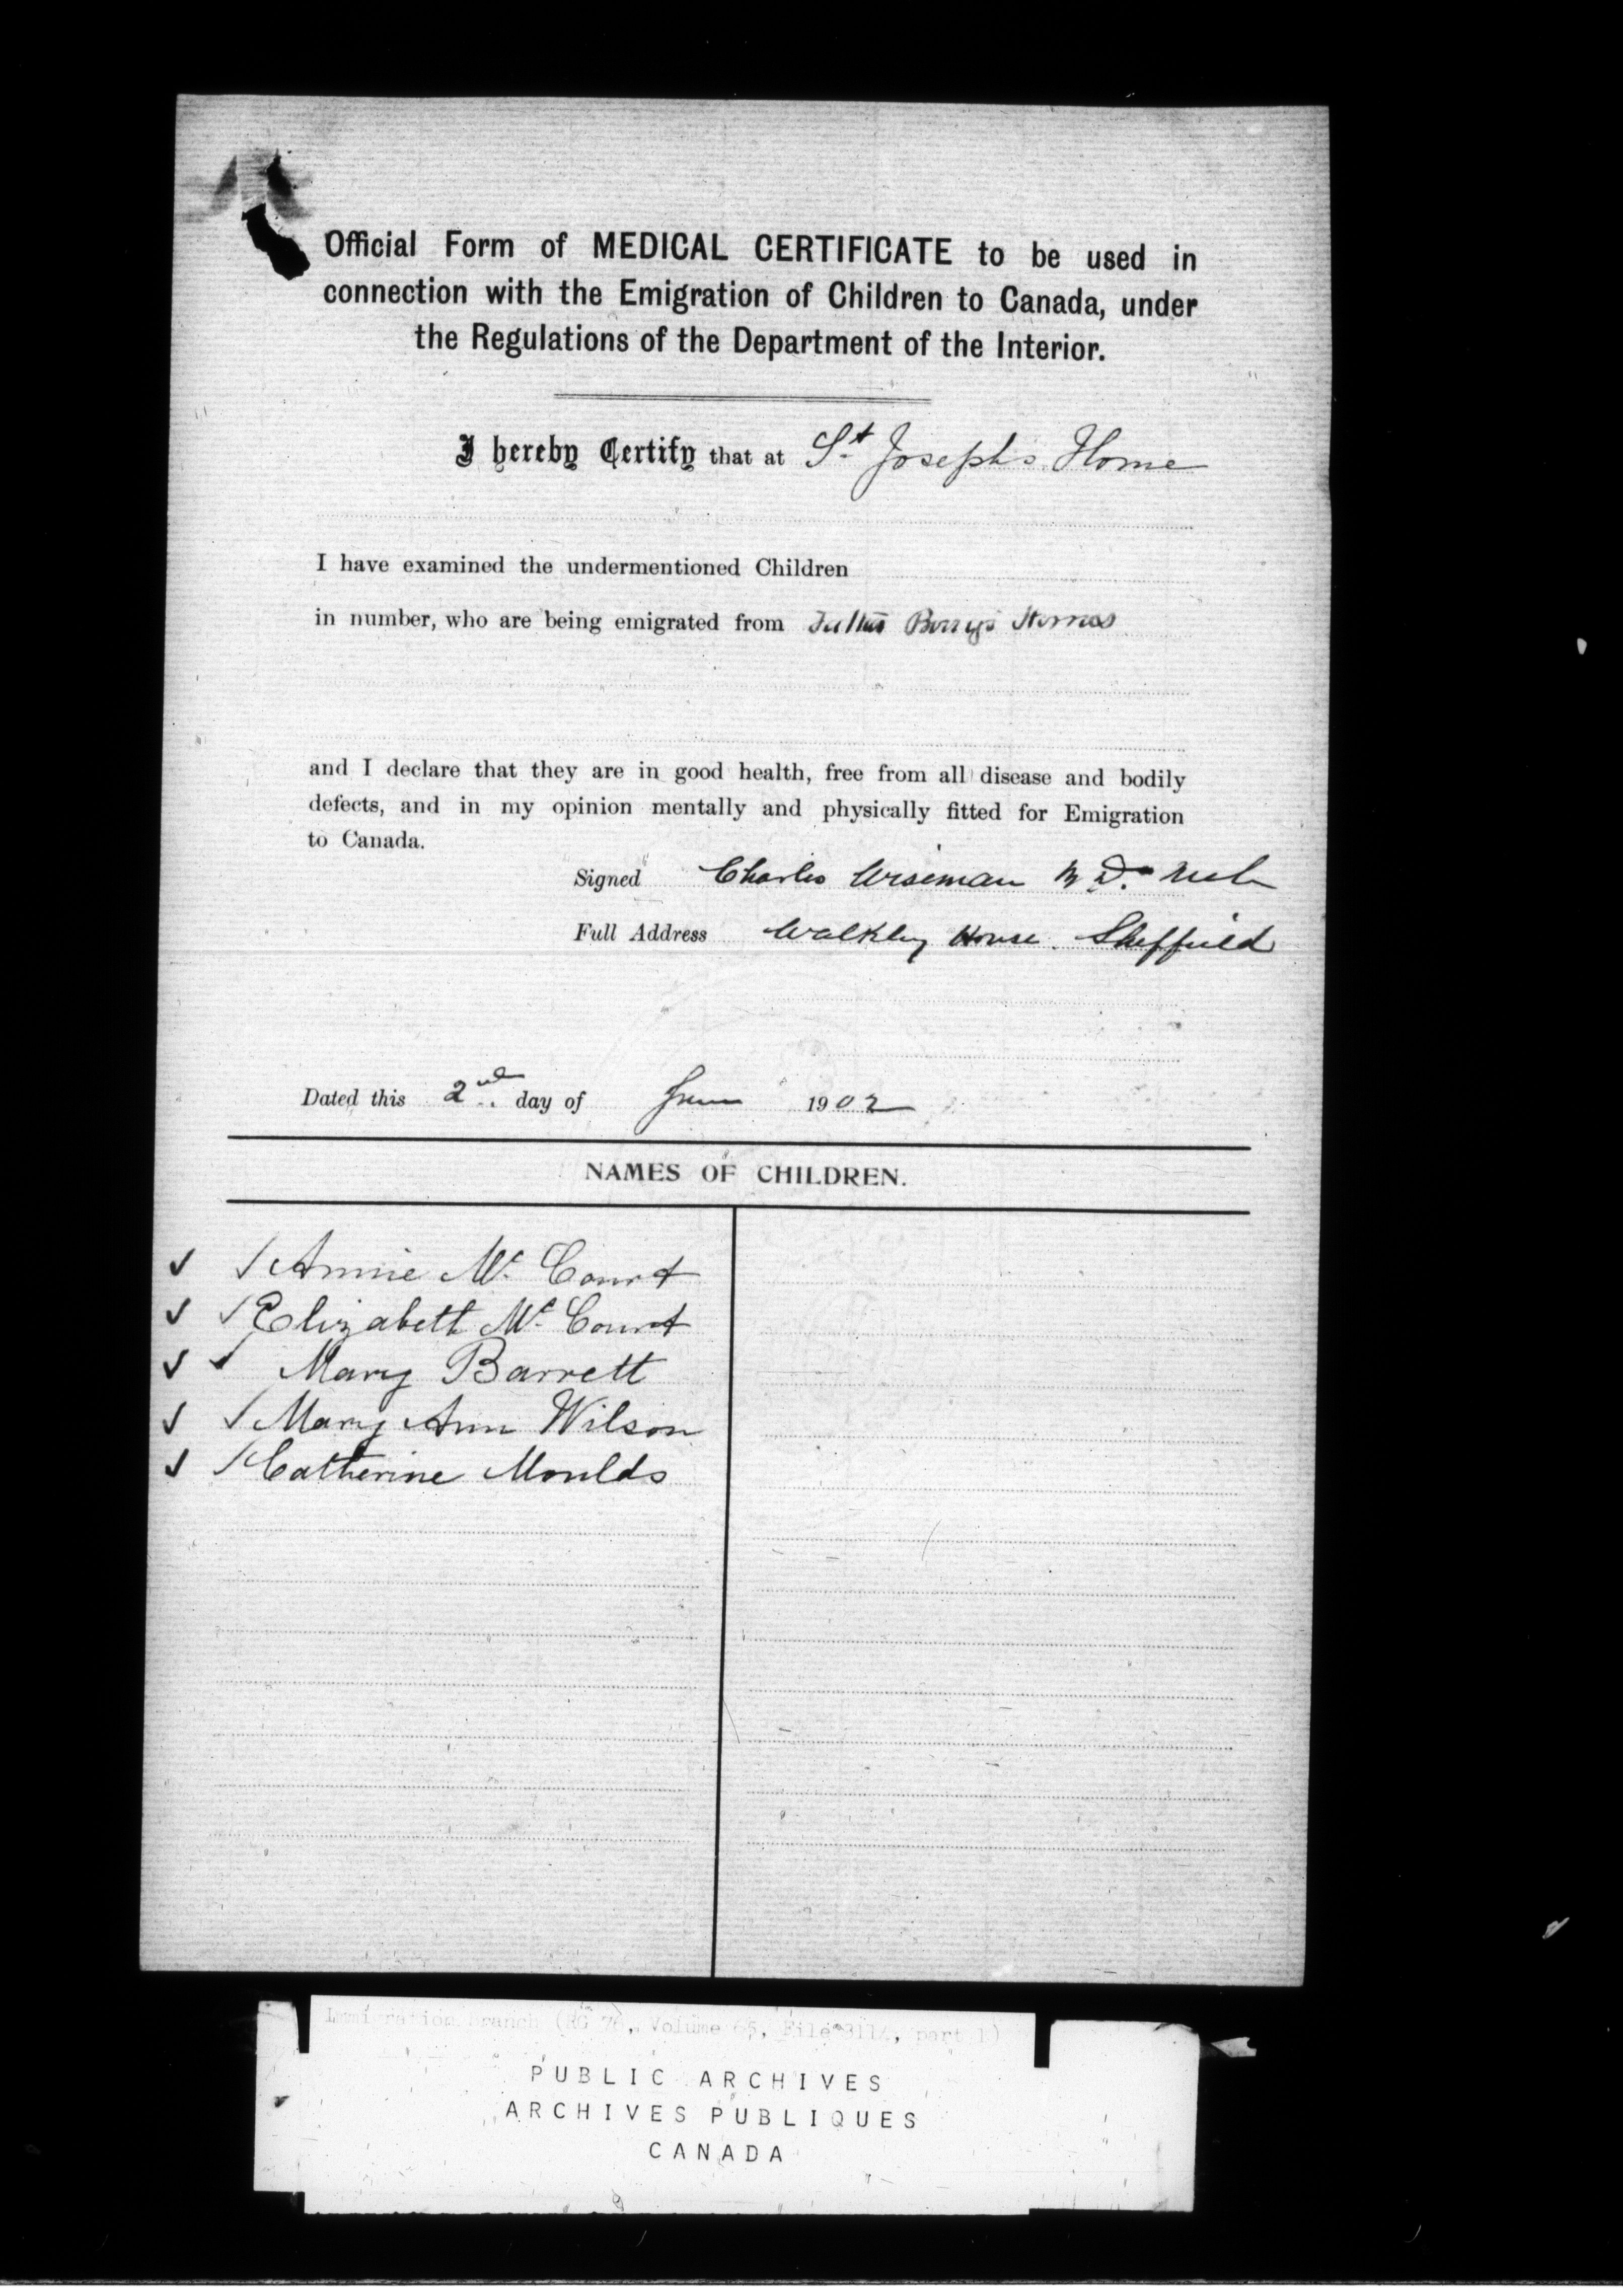 Official Form of MEDICAL CERTIFICATE to be used in
connection with the Emigration of Children to Canada, under
the Regulations of the Department of the Interior.
I hereby Certify that at St Josephs Home
I have examined the undermentioned Children
in number, who are being emigrated from Father Berrys Homes
and I declare that they are in good health, free from all disease and bodily
defects, and in my opinion mentally and physically fitted for Emigration
to Canada.
Signed Charles Wiseman M D.
Full Address Walkley House. Sheffield
Dated this 2nd day of June 1902
NAMES OF CHILDREN.
✓ / Annie Mc Court
✓ ✓ Elizabeth Mc Court
✓ ✓ Mary Barrett
✓ / Mary Ann Wilson
✓ / Catherine Moulds
Immigration Branch (RG 76, Volume 65, File 3114, part 1)
PUBLIC ARCHIVES
ARCHIVES PUBLIQUES
CANADA